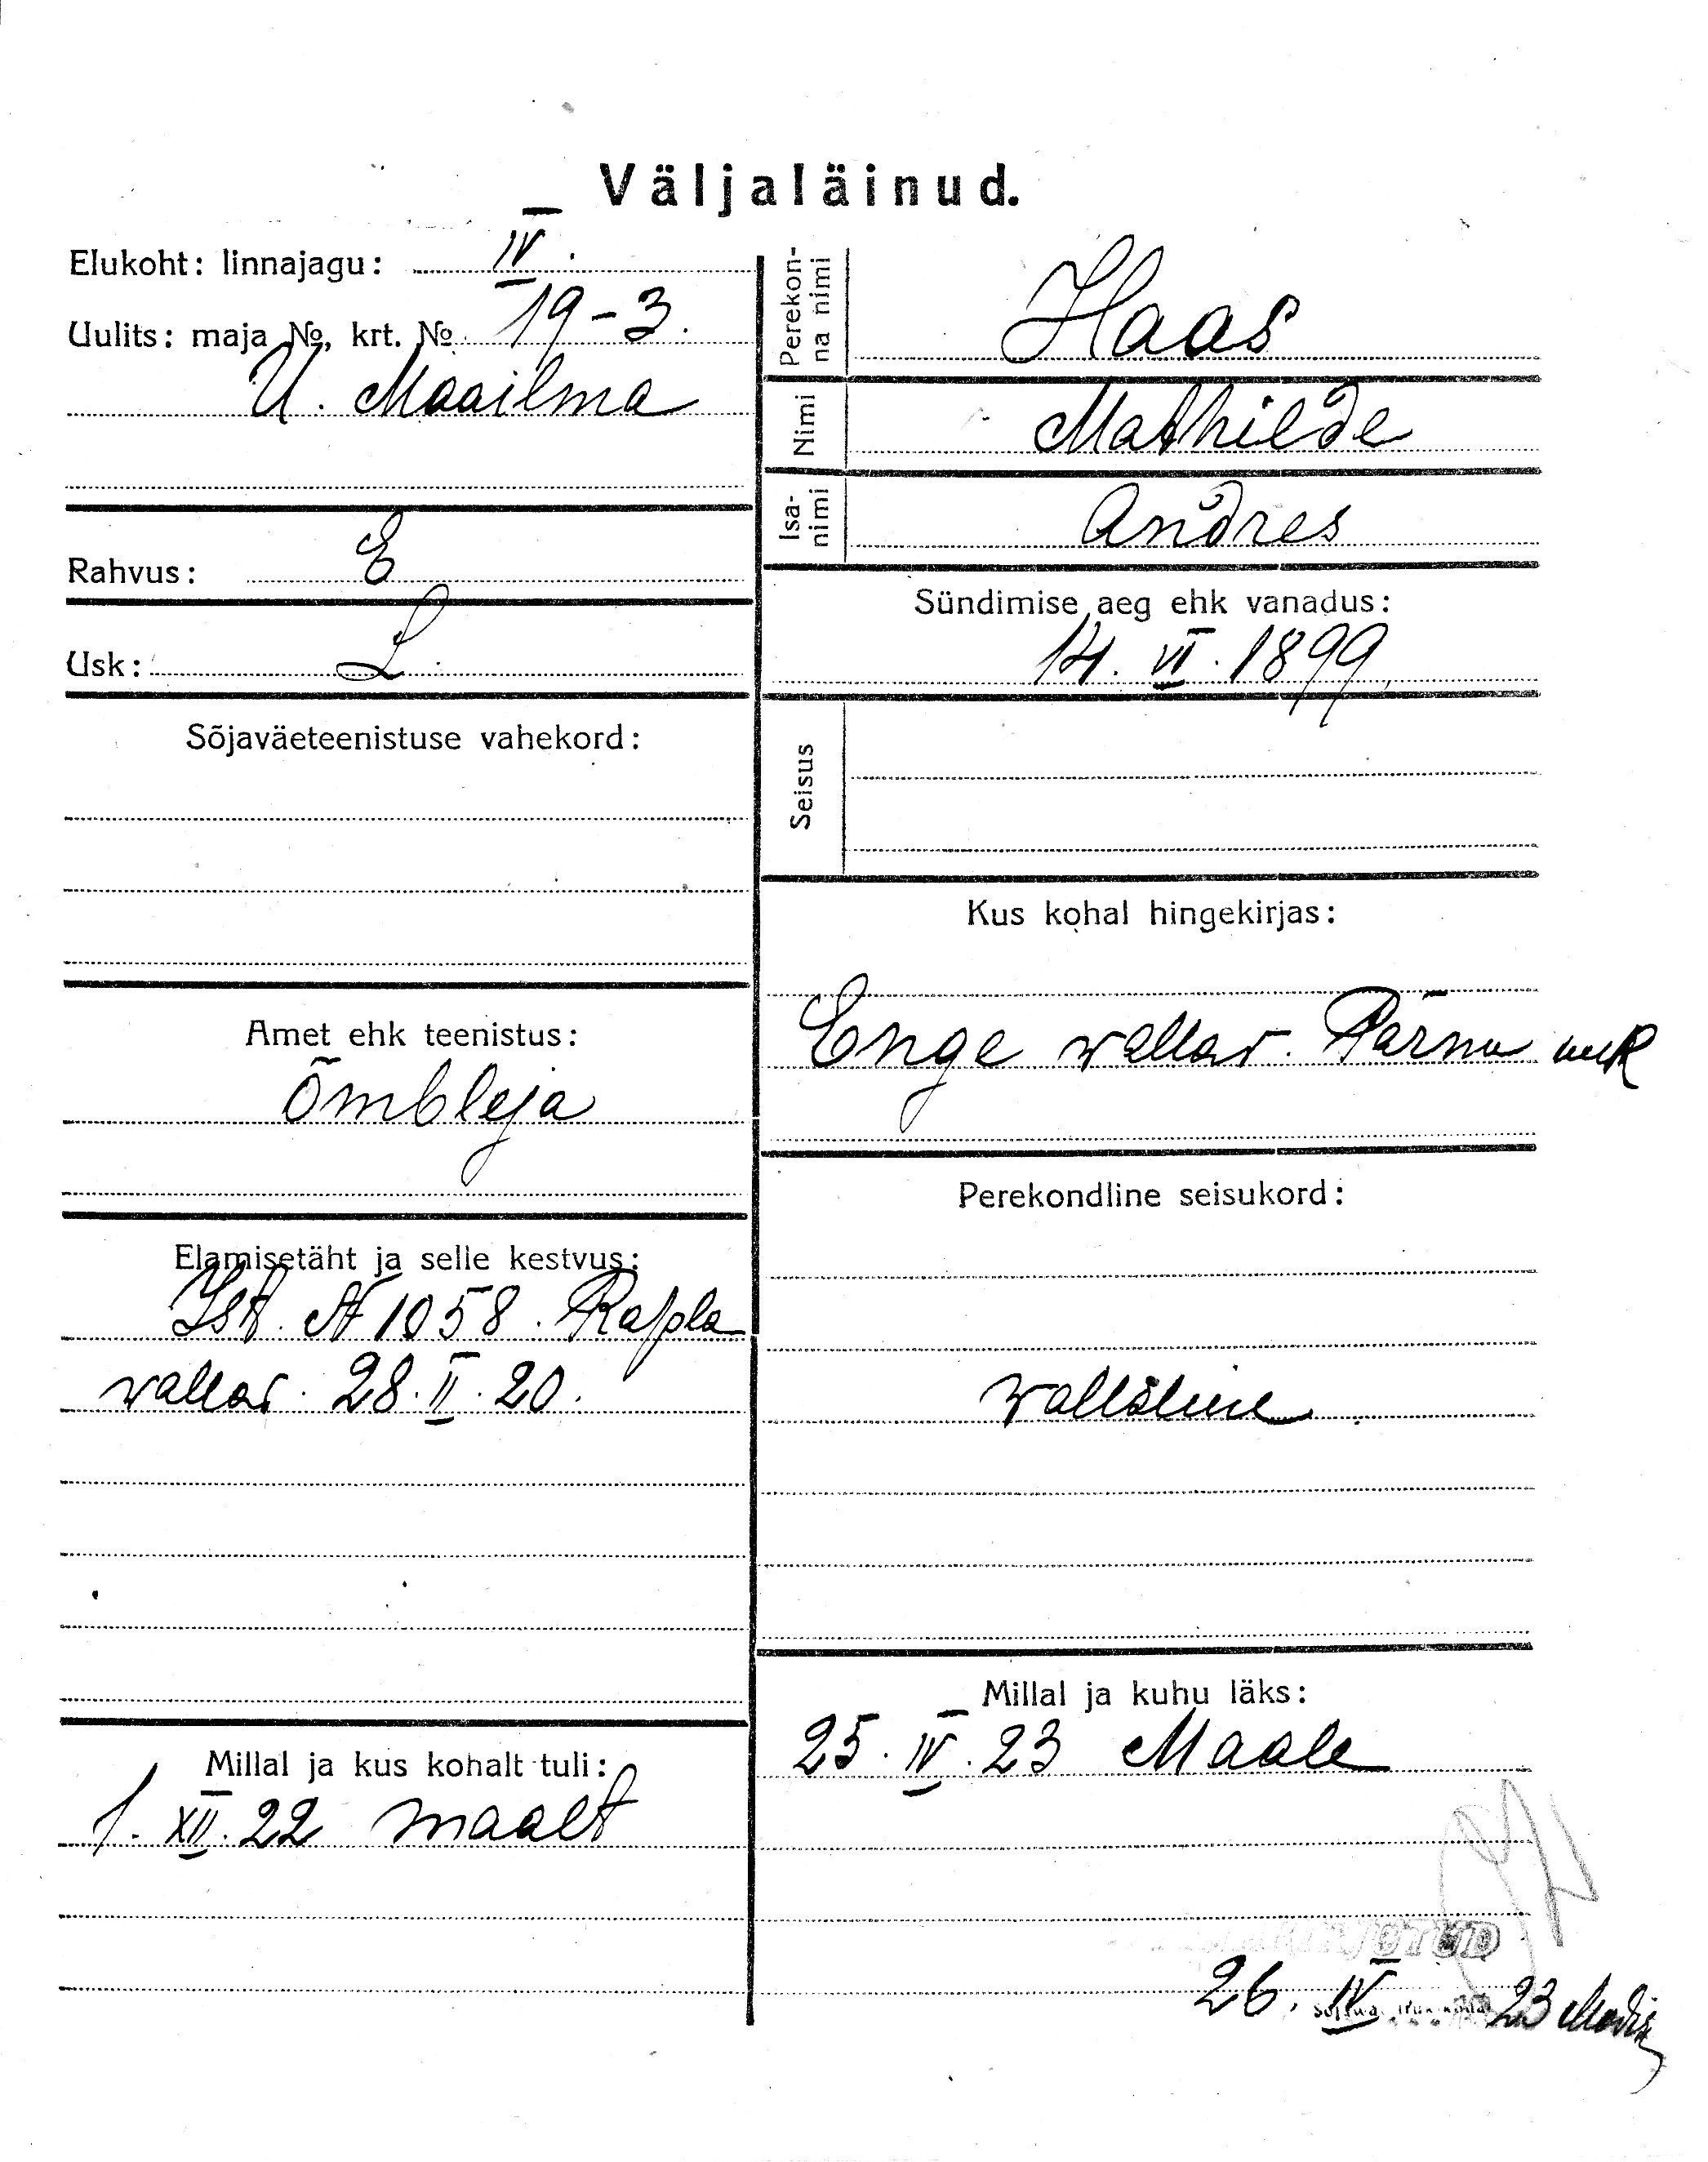 Väljaläinud.
Elukoht: linnajagu: IV.
Uulits: maja №, krt. № 19-3.
U. Maailma
Rahvus: E
Usk: L.
Sõjaväeteenistuse vahekord:
Amet ehk teenistus:
Õmbleja
Elamisetäht ja selle kestvus:
Ist. № 1058. Rapla
vallav. 28. II. 20.
Millal ja kus kohalt tuli:
1. XII. 22 maalt
Perekon-
na nimi
Haas
Nimi
Mathilde
Isa-
nimi
Andres
Sündimise aeg ehk vanadus:
14. VI. 1899
Seisus
Kus kohal hingekirjas:
Enge vallav. Pärnu
Perekondline seisukord:
vallaline
Millal ja kuhu läks:
25. IV. 23 Maale
26. IV 23